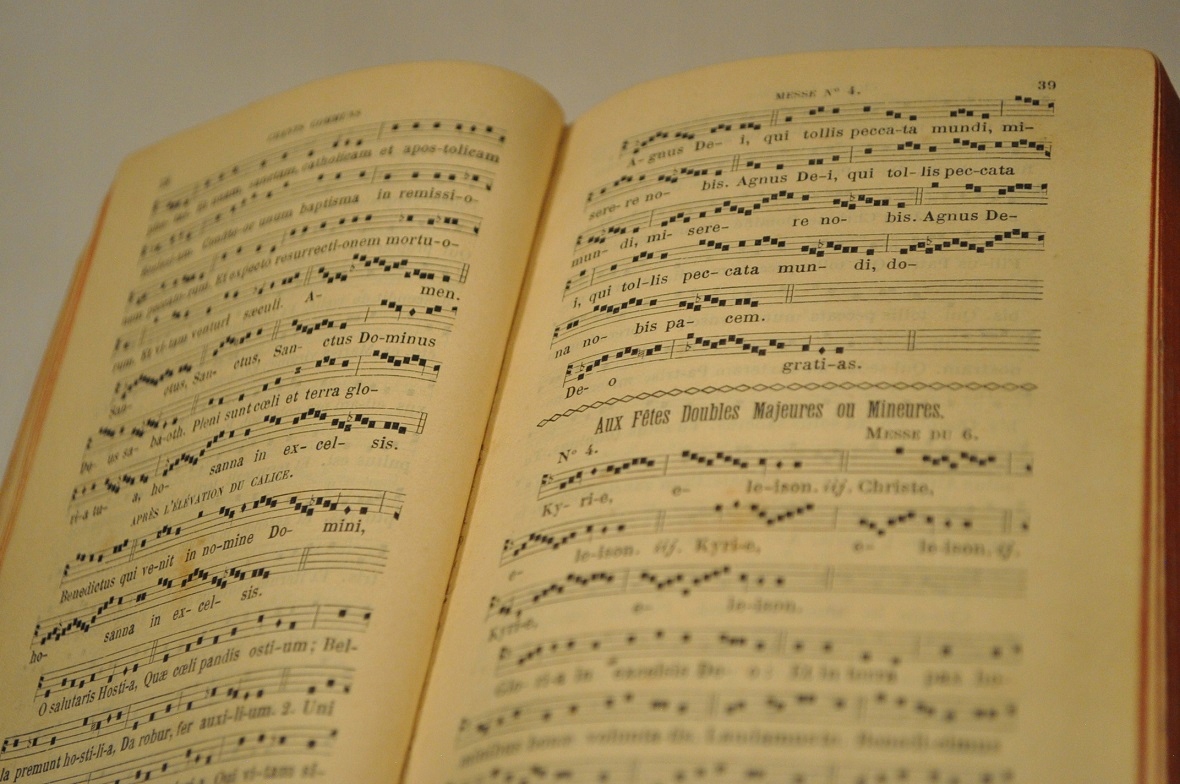 CHANTS COMMUNS
sanctam, catholicam et apos-tolicam
unum baptisma in remissi-o-
rum. Et expecto resurrecti-onem mortu-o-
rum. Et vi-tam venturi sæculi. A- men.
San- ctus, San- ctus, San- ctus Do-minus
De- us sa- ba-oth. Pleni sunt cœli et terra glo-
ri-a tu- a, ho- sanna in ex- cel- sis.
APRÈS L'ÉLÉVATION DU CALICE.
Benedictus qui ve-nit in no-mine Do- mini,
ho- sanna in ex- cel- sis.
O salutaris Hosti-a, Quæ cœli pandis osti-um; Bel-
la premunt ho-sti-li-a, Da robur, fer auxi-li-um. 2. Uni
Qui vi-tam si-
MESSE N° 4.
39
A- gnus De- i, qui tollis pecca-ta mundi, mi-
sere- re no- bis. Agnus De-i, qui tol- lis pec-cata
mun- di, mi- sere- re no- bis. Agnus De-
i, qui tol-lis pec- cata mun- di, do-
na no- bis pa- cem.
De- o grati-as.
Aux Fêtes Doubles Majeures ou Mineures.
MESSE DU 6.
N° 4.
Ky- ri-e, e- le-ison. iij. Christe,
e- le-ison. iij. Kyri-e, e- le-ison. ij.
Kyri-e, e- le-ison.
Glo- ri-a in excelsis De- o: Et in terra pax ho-
minibus bonæ volunta-tis. Laudamus te. Benedi-cimus